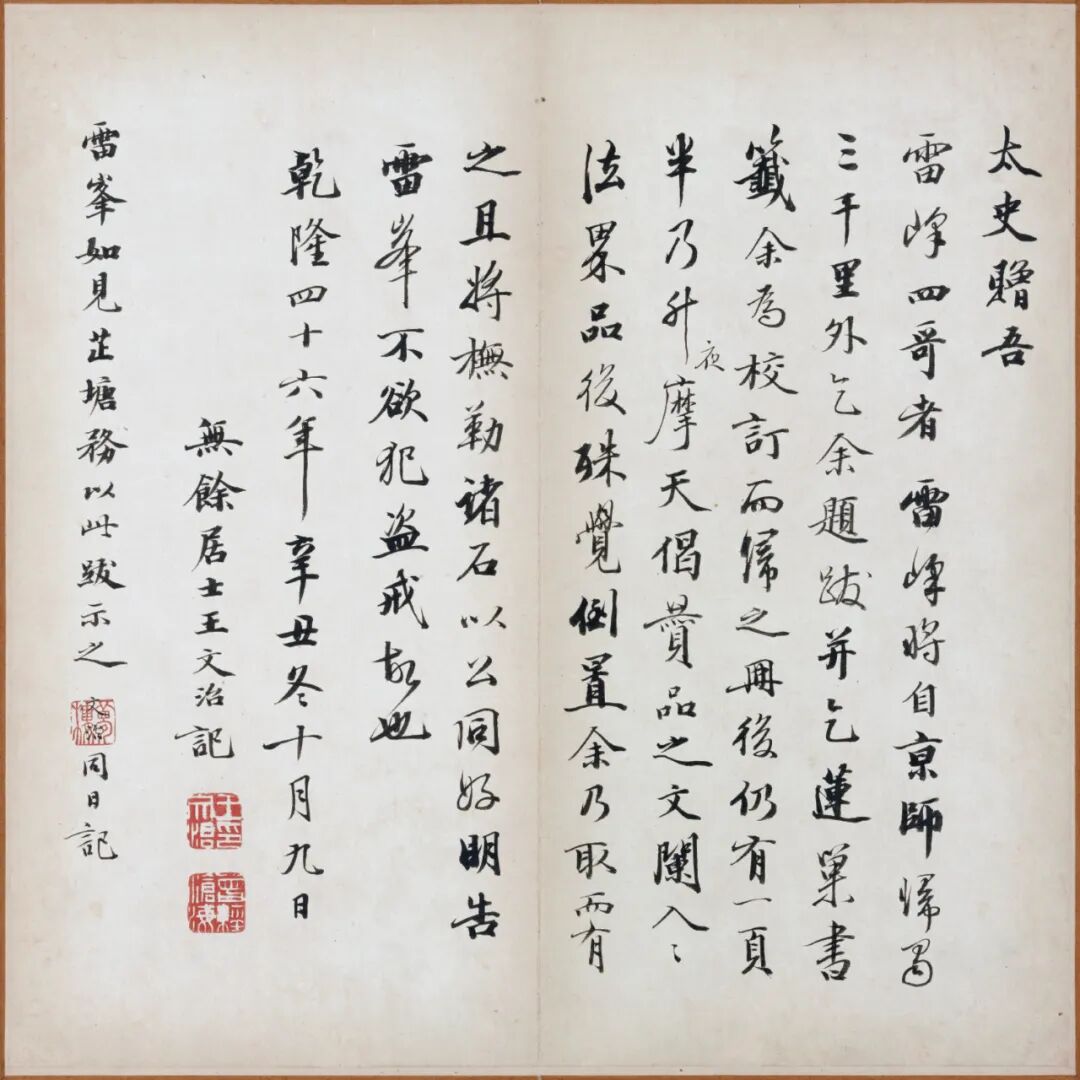 太史贈吾
雷峰四哥者雷峰將自京師歸蜀
三千里外乞余題跋并乞蓮巢書
籤余為校訂而歸之冊後仍有一頁
半乃升夜摩天偈賛品之文闌入〻
法界品後殊覺倒置余乃取而有
之且將橅勒諸石以公同好明告
雷峯不欲犯盜戒故也
乾隆四十六年辛丑冬十月九日
無餘居士王文治記
王印文治
曾經滄海
雷峯如見芷塘務以此跋示之文治同日記